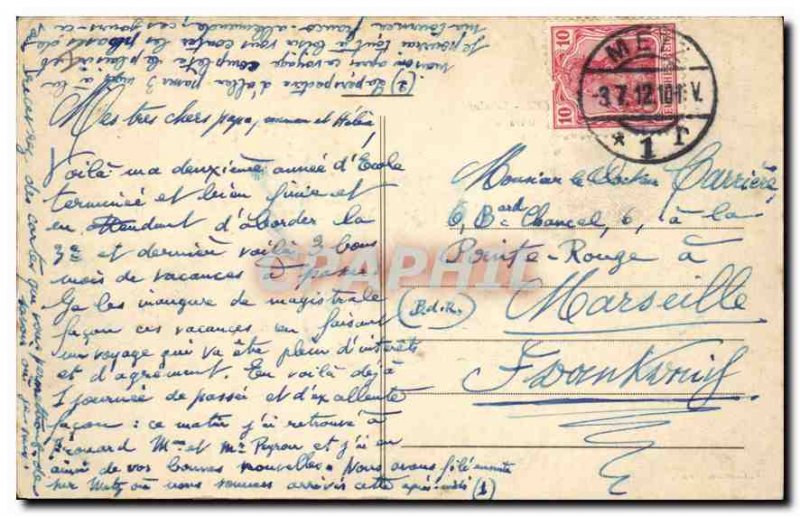 Mes très chers papa, maman et Hélène
Voilà ma deuxième année d'Ecole
terminée et bien finie et
en attendant d'aborder la
3e et dernière voilà 2 bons
mois de vacances à passer.
Ça les inaugure de magistrale
façon ces vacances en faisant
un voyage qui va être plein d'intérêts
et d'agrément. En voilà déjà
1 journée de passée et d'excellente
façon : ce matin j'ai retrouvé à
Frouard Mme et Mr Peyron et j'ai eu
ainsi de vos bonnes nouvelles. Nous avons filé ensuite
sur Metz où nous sommes arrivés cette après-midi (1)
(2) La perspective d'aller passer 3 mois à la
maison après ce voyage complète la plaisir et
je pourrai tout à loisir vous conter les phases de
ma tournée franco-allemande, ces jours-ci
Vous recevrez des cartes qui vous permettront de
savoir où je suis.
METZ
3.7.12.10-11V.
* 1 r
10
10
Monsieur le Docteur Carrière,
6, Bard Chancel, 6, à la
Pointe-Rouge à
(B.d.R.) Marseille
Frankreich
CPAPHIL